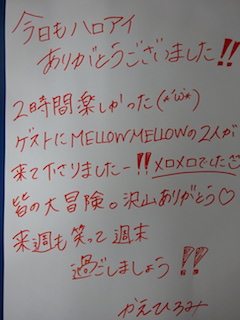 今日もハロアイ
ありがとうございました!!
2時間楽しかった(*'ω'*)
ゲストにMELLOW MELLOWの2人が
来て下さりましたー!!メロメロでしたぞ
皆の大冒険も沢山ありがとう♡
来週も笑って週末
過ごしましょう!!
かえひろみ